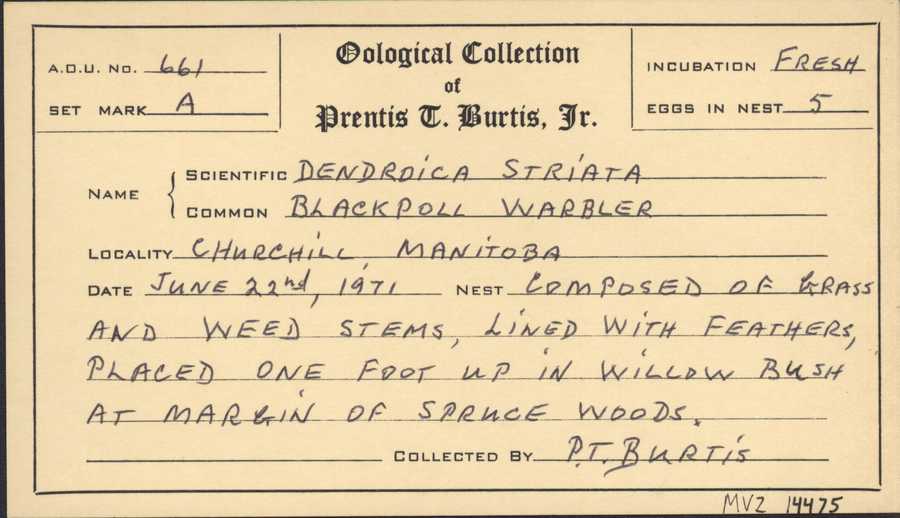 A.O.U. No. 661
SET MARK A
Oological Collection
of
Prentis T. Burtis, Jr.
INCUBATION FRESH
EGGS IN NEST 5
NAME { SCIENTIFIC DENDROICA STRIATA
COMMON BLACKPOLL WARBLER
LOCALITY CHURCHILL, MANITOBA
DATE JUNE 22nd, 1971 NEST COMPOSED OF GRASS
AND WEED STEMS, LINED WITH FEATHERS,
PLACED ONE FOOT UP IN WILLOW BUSH
AT MARGIN OF SPRUCE WOODS.
COLLECTED BY P.T. BURTIS
MVZ 14475